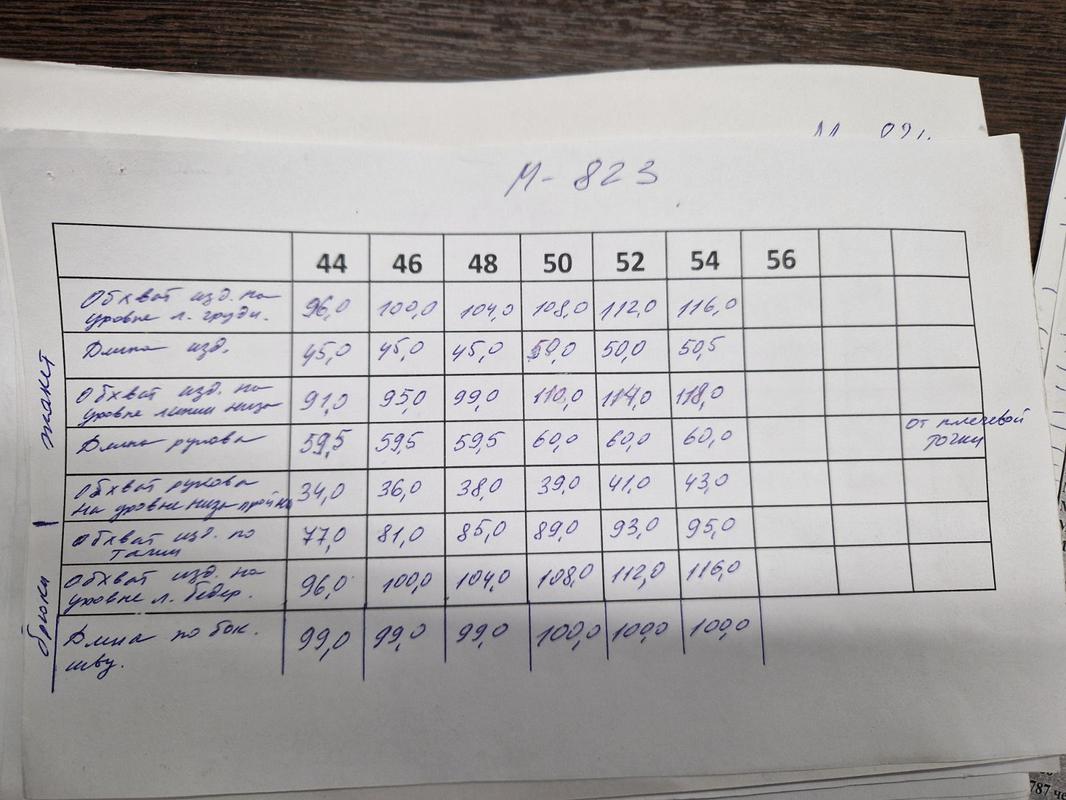 М- 823
44 46 48 50 52 54 56
жакет
Обхват изд. на
уровне л. груди. 96,0 100,0 104,0 108,0 112,0 116,0
Длина изд. 45,0 45,0 45,0 50,0 50,0 50,5
Обхват изд. на
уровне линии низа 91,0 95,0 99,0 110,0 114,0 118,0
Длина рукава 59,5 59,5 59,5 60,0 60,0 60,0 от плечевой
точки
Обхват рукава
на уровне низа проймы 34,0 36,0 38,0 39,0 41,0 43,0
брюки
Обхват изд. по
талии 77,0 81,0 85,0 89,0 93,0 95,0
Обхват изд. на
уровне л. бедер. 96,0 100,0 104,0 108,0 112,0 116,0
Длина по бок.
шву. 99,0 99,0 99,0 100,0 100,0 100,0